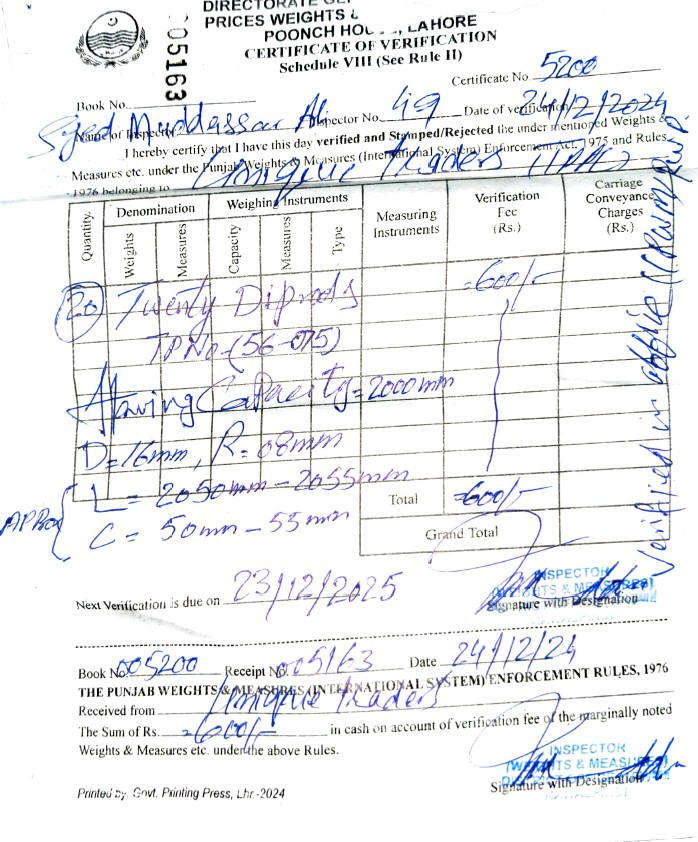 DIRECTORATE GE
PRICES WEIGHTS &
POONCH HOU , LAHORE
CERTIFICATE OF VERIFICATION
Schedule VIII (See Rule II)
005163
Certificate No. 5200
Book No.
Name of Inspector Syed Muddassar Ali Inspector No. 49 Date of verification 24/12/2024
I hereby certify that I have this day verified and Stamped/Rejected the under mentioned Weights &
Measures etc. under the Punjab Weights & Measures (International System) Enforcement Act, 1975 and Rules
1976 belonging to Unique Traders
Quantity. Denomination Weighing Instruments Measuring Instruments Verification Fee (Rs.) Carriage Conveyance Charges (Rs.)
Weights Measures Capacity Measures Type
(20) Twenty Diprods =600/-
TP No-(56-075)
Having Capacity=2000mm
D=16mm, R=08mm
Approx L = 2050mm-2055mm
C = 50mm-55mm
Total =600/-
Grand Total
Verified in office
Next Verification is due on 23/12/2025
INSPECTOR
(WEIGHTS & MEASURES)
Signature with Designation
Book No. 005200 Receipt No. 005163 Date 24/12/24
THE PUNJAB WEIGHTS & MEASURES (INTERNATIONAL SYSTEM) ENFORCEMENT RULES, 1976
Received from Unique Traders
The Sum of Rs. =600/- in cash on account of verification fee of the marginally noted
Weights & Measures etc. under the above Rules.
INSPECTOR
(WEIGHTS & MEASURES)
Signature with Designation
Printed by. Govt. Printing Press, Lhr.-2024